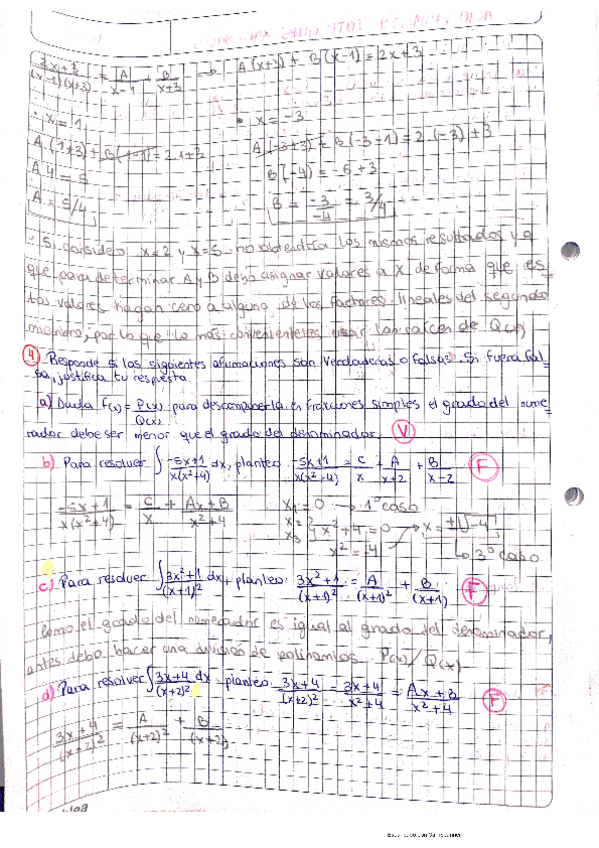 3x+3/(x-1)(x+3) = A/x-1 + B/x+3 → A(x+3) + B(x-1) = 2x+3
· x=1
• x=-3
A.(1+3)+B(1-1)=2.1+3
A(-3+3)+B(-3-1)=2.(-3)+3
A.4=5
B(-4)=-6+3
A=5/4
B=-3/-4=3/4
- Si considero x=2 y x=5 no obtendría los mismos resultados ya
que para determinar A y B debo asignar valores a X de forma que es
tos valores hagan cero a alguno de los factores lineales del segundo
miembro, por lo que lo más conveniente es usar las raíces de Q(x)
4 Responde si las siguientes afirmaciones son verdaderas o falsas. Si fuera fal-
sa, justifica tu respuesta
a) Dada f(x)=P(x)/Q(x) para descomponerla en fracciones simples el grado del nume-
rador debe ser menor que el grado del denominador. V
b) Para resolver ∫ -5x+1/x(x²-4) dx, planteo -5x+1/x(x²-4) = C/x + A/x+2 + B/x-2 F
-5x+1/x(x²+4) = C/x + Ax+B/x²+4
x1=0 → 1°caso
x2 x3 } x²+4=0 → x=±√-4
x²=-4
↳ 3°caso
c) Para resolver ∫ 3x²+1/(x+1)² dx, planteo 3x²+1/(x+1)² = A/(x+1)² + B/(x+1) F
Como el grado del numerador es igual al grado del denominador,
antes debo hacer una división de polinomios P(x)/Q(x)
d) Para resolver ∫ 3x+4/(x+2)² dx planteo 3x+4/(x+2)² = 3x+4/x²+4 = Ax+B/x²+4 F
3x+4/(x+2)² = A/(x+2)² + B/(x+2)